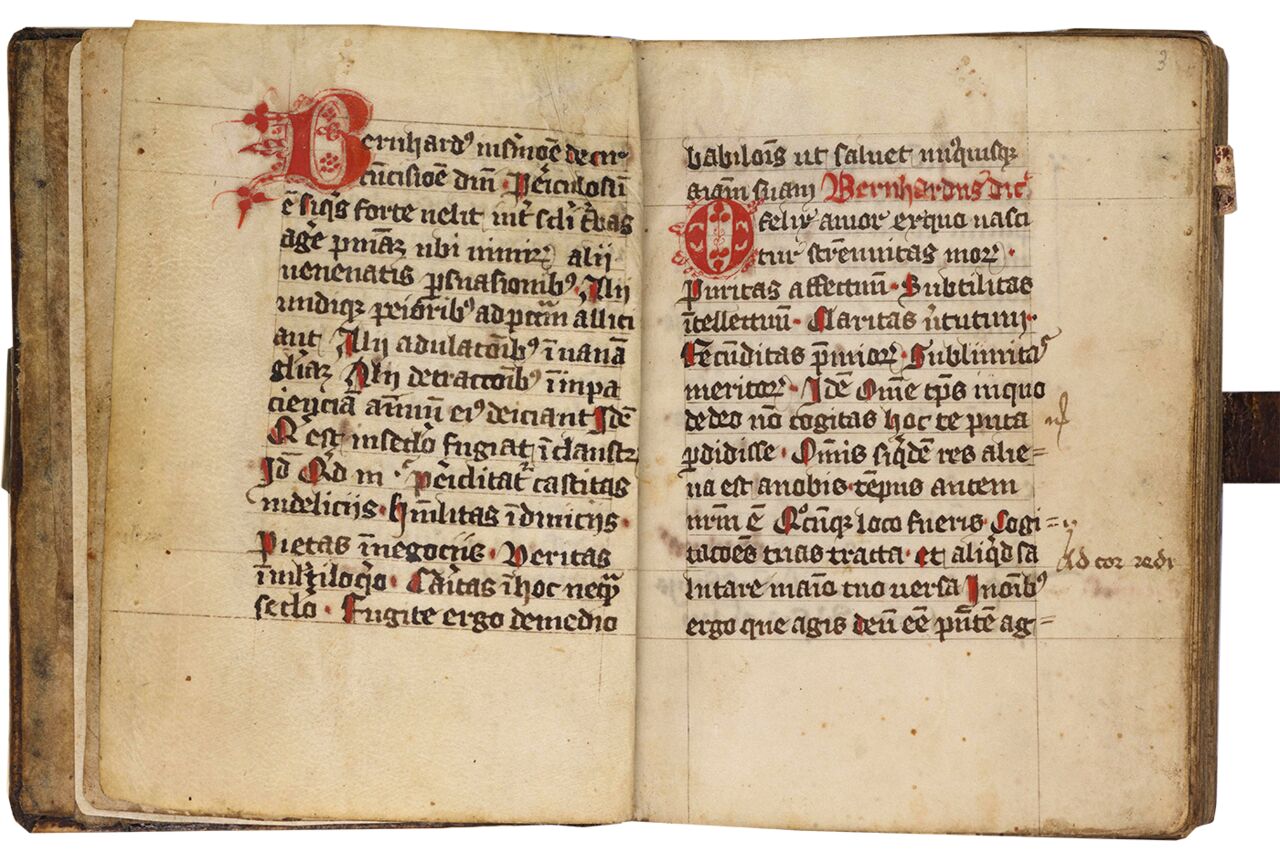 Bernhardꝰ in sermōe de cir
cūcisiōe dnī · Periculosū
ē siqͥs forte uelit int̄ scl̄i t̄bas
age᷑ pn̄iaꝫ ubi nimirꝝ alii
uenenatis ꝑsuasionibꝰ · Alij
undiqꝫ peioribꝰ ad pctām allici
ant Alij adulatōibꝰ ī uanā
gl̄iaꝫ Alij detractōibꝰ ī inpa
cienciā animū eiꝰ deiciant Idē
est in secl̄o fugiat ī claustꝝ
Id̄ m · ꝑiclitat᷑ castitas
in delicijs · humilitas ī diuicijs ·
Pietas ī negocijs · Veritas
ī mltiloqͦo · Caritas ī hoc neqͣ
secl̄o · Fugite ergo de medio
3
babilois ut saluet unꝰquisqꝫ
aīam suam Bernhardus dic᷑
O felix amor ex quo nasci
tur strennuitas moꝝ ·
Puritas affectuū · Subtilitas
ītellectuū · Claritas uͥtutum
Fecūditas p̄mioꝝ · Sublimitas
meritoꝝ · Idē Om̄e tp̄s in quo
de deo nō cogitas hoc te puta
ꝑdidisse · Om̄is siqͥdē res alie=
na est a nobis · tēpus autem
nr̄m ē Qͦcūqꝫ loco fueris Cogi=
tacōes tuas tracta · et aliqͥd sa
lutare maīo tuo uersa In oīibꝰ
ergo que agis deū eē pn̄tē ag=
Ad cor redi